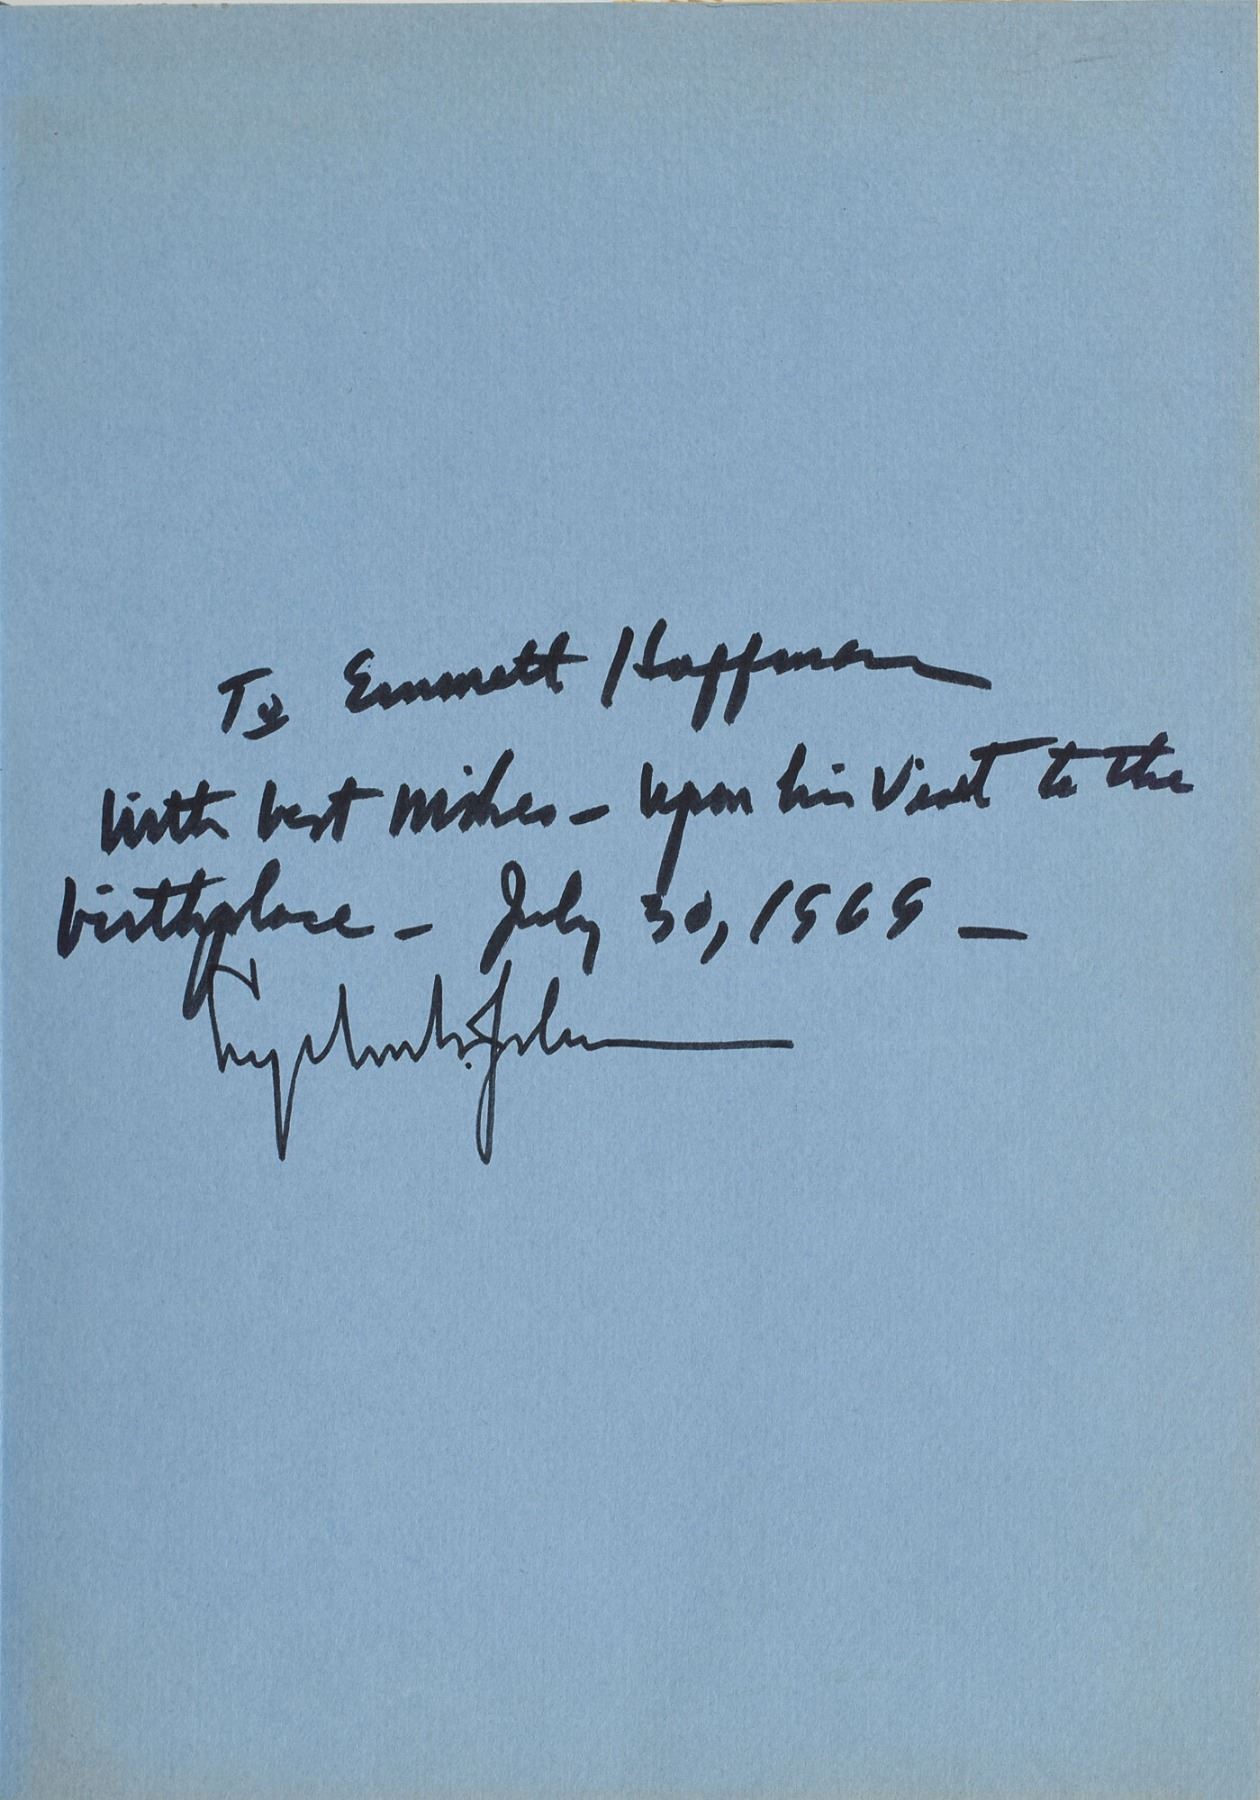 To Emmett Hoffman
with best wishes – upon his visit to the
birthplace – July 30, 1969 –
Lyndon B. Johnson